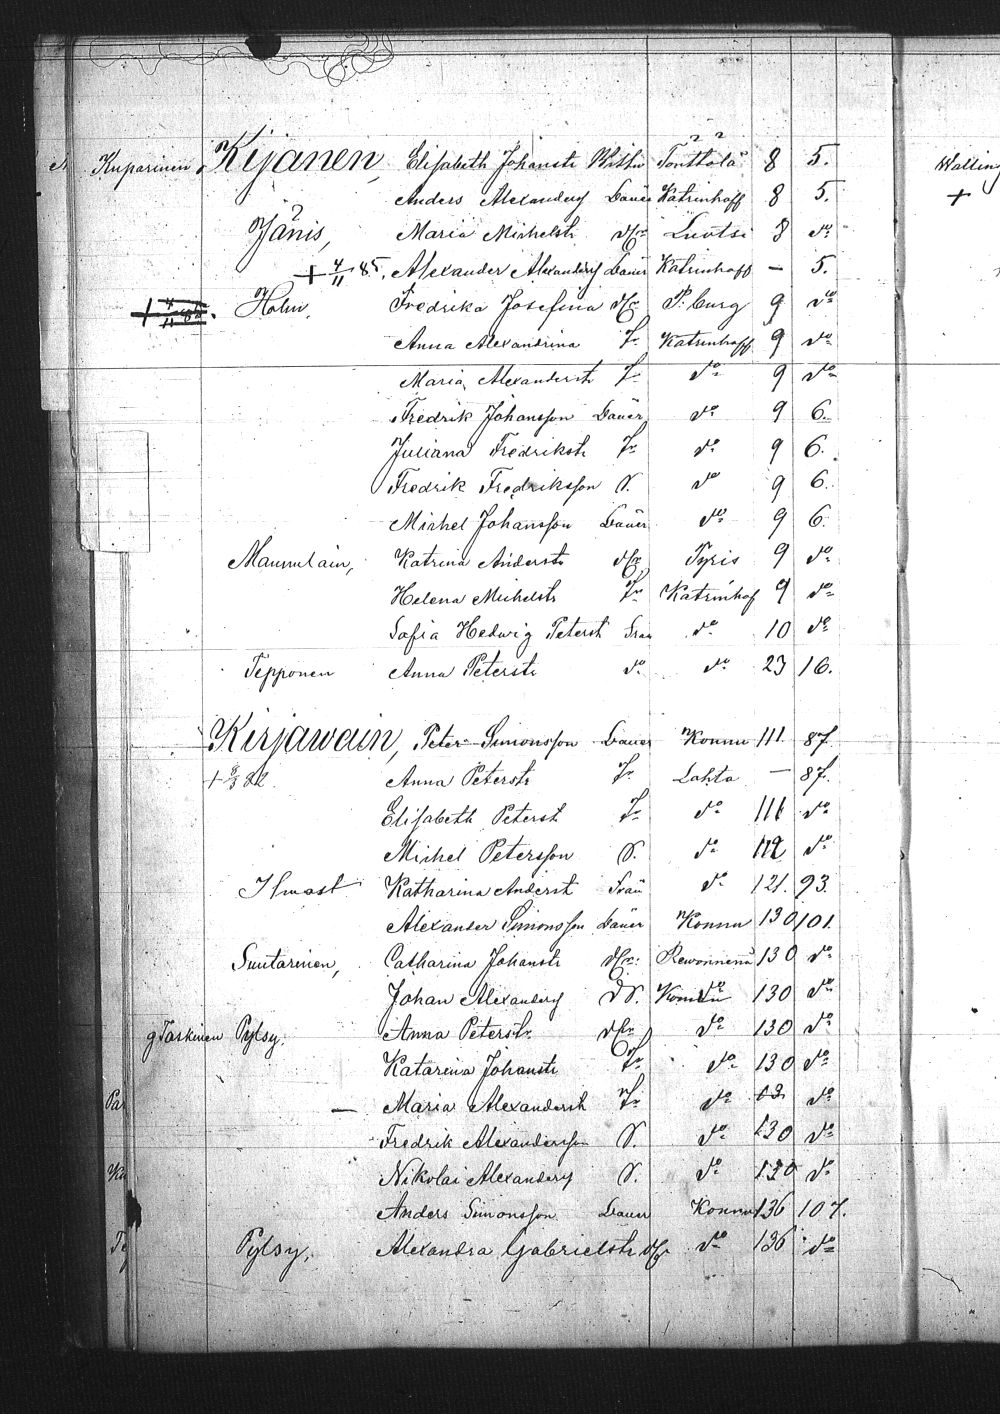 Kuparinen, Kijanen, Elisabeth Johanstr Wittw Tönttölä 8 5. Walling
Anders Alexanders Bauer Katrinhoff 8 5. +
Jänis, Maria Michelstr dfr Luutsi 8 do
+ 4/11 85. Alexander Alexanders Bauer Katrinhoff — 5.
Holm, Fredrika Josefina dfr P:burg 9 do
Anna Alexandrina T. Katrinhoff 9 do
Maria Alexanderstr T. do 9 do
Fredrik Johansson Bauer do 9 6.
Juliana Fredrikstr T. do 9 6.
Fredrik Fredriksson S. do 9 6.
Michel Johansson Bauer do 9 6.
Katrina Anderstr dfr Pyris 9 do
Helena Michelstr T. Katrinhof 9 do
Sofia Hedwig Peterstr Frau do 10 do
Tepponen Anna Peterstr do do 23 16.
Kirjawain, Peter Simonsson Bauer Konnu 111. 87.
+ 82 Anna Peterstr T. Lahta — 87.
Elisabeth Peterst T. do 111 do
Michel Petersson S. do 112 do
Ilmast Katharina Anderst Frau do 121. 93.
Alexander Simonsson Bauer Konnu 130 101.
Suutarinen, Catharina Johanstr dfr. 130 do
Johan Alexanders S. Konnu 130 do
g Taskinen Pylsy. Anna Peterstr. dfr. do 130 do
Katarina Johanstr T. do 130 do
Par — Maria Alexanderstr T. do do
Fredrik Alexandersson S. do 130 do
Ku Nikolai Alexanders S. do 130 do
Anders Simonsson Bauer Konnu 136 107.
Te Pylsy, Alexandra Gabrielstr dfr do 136 do